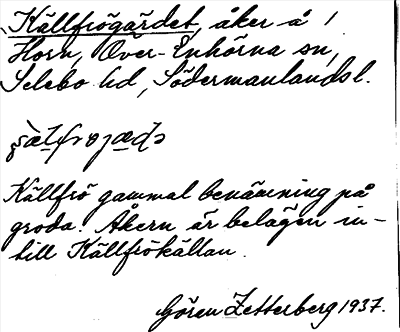 Källfrögärdet, åker å 1
Horn, Över-Enhörna sn,
Selebo hd, Södermanlandsl.
Källfrö gammal benämning på
groda. Åkern är belägen in-
till Källfrökällan.
Gören Zetterberg 1937.